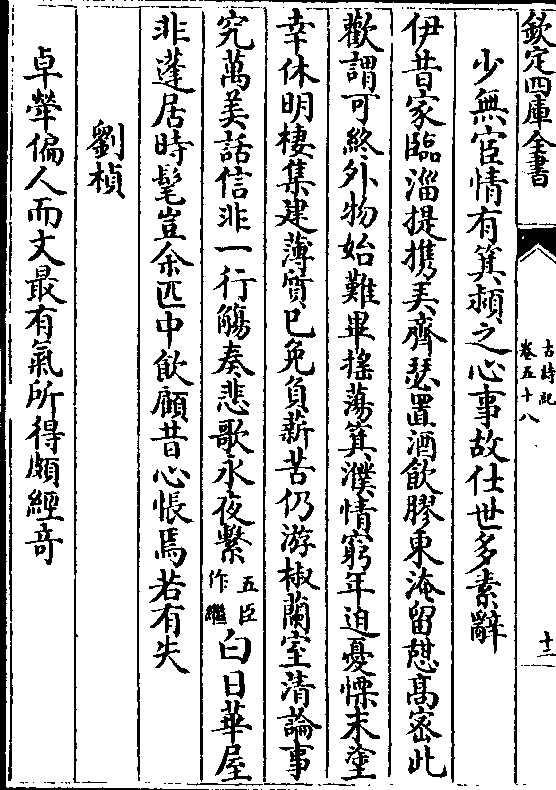 欽定四庫全書
古詩紀
卷五十八
十三
少無宦情有箕潁之心事故仕世多素辭
伊昔家臨淄提携弄齊瑟置酒飲膠東淹留憇高密此
歡謂可終外物始難畢搖蕩箕濮情窮年迫憂慄末塗
幸休明棲集建薄質已免負薪苦仍游椒蘭室清論事
究萬美話信非一行觴奏悲歌永夜繫五臣作繼白日華屋
非蓬居時髦豈余匹中飲顧昔心悵焉若有失
劉楨
卓犖偏人而文最有氣所得頗經奇